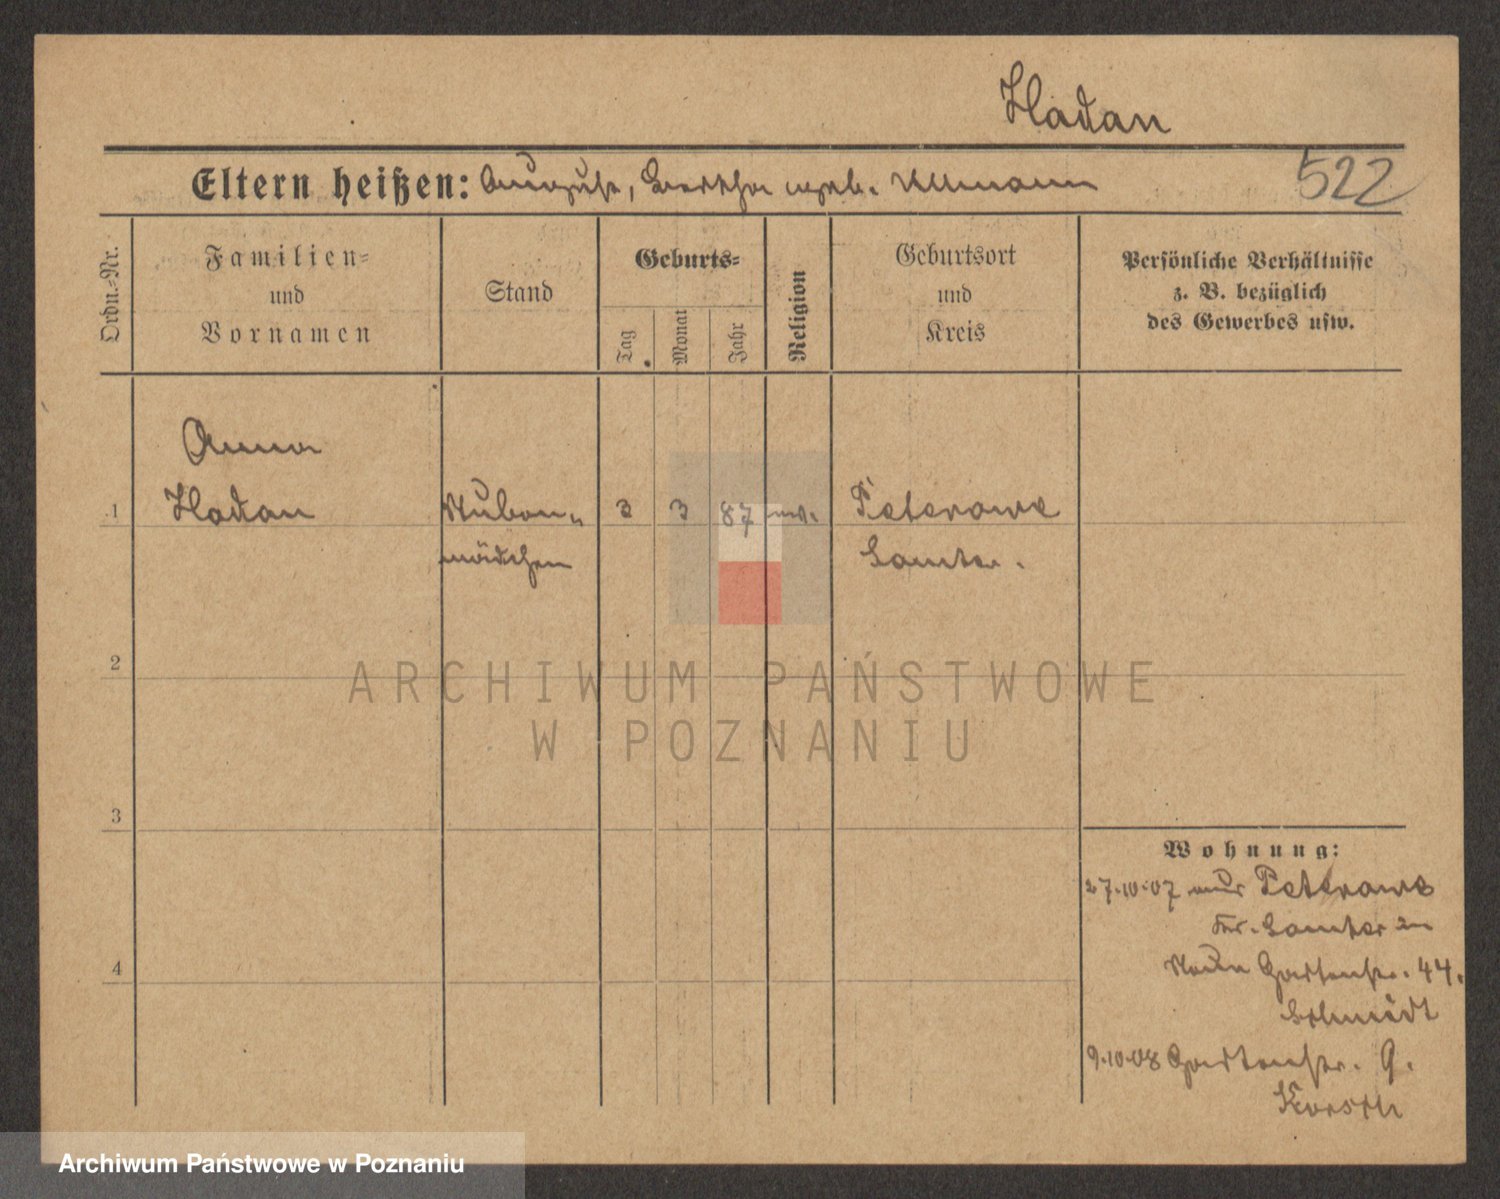 Hadan
Eltern heißen: August, Bertha geb. Ullmann
522
Ordn.-Nr.
Familien-
und
Vornamen
Stand
Geburts-
Tag
Monat
Jahr
Religion
Geburtsort
und
Kreis
Persönliche Verhältnisse
z. B. bezüglich
des Gewerbes usw.
Anna
1 Hadan Stuben- 3 3 87 ev. Peterawe
mädchen Samter.
2
3
4
Wohnung:
27.10.07 aus Peterawe
Kr. Samter in
Gartenstr. 44.
Schmidt
9.10.08 Gartenstr. 9.
ARCHIWUM PAŃSTWOWE
W POZNANIU
Archiwum Państwowe w Poznaniu